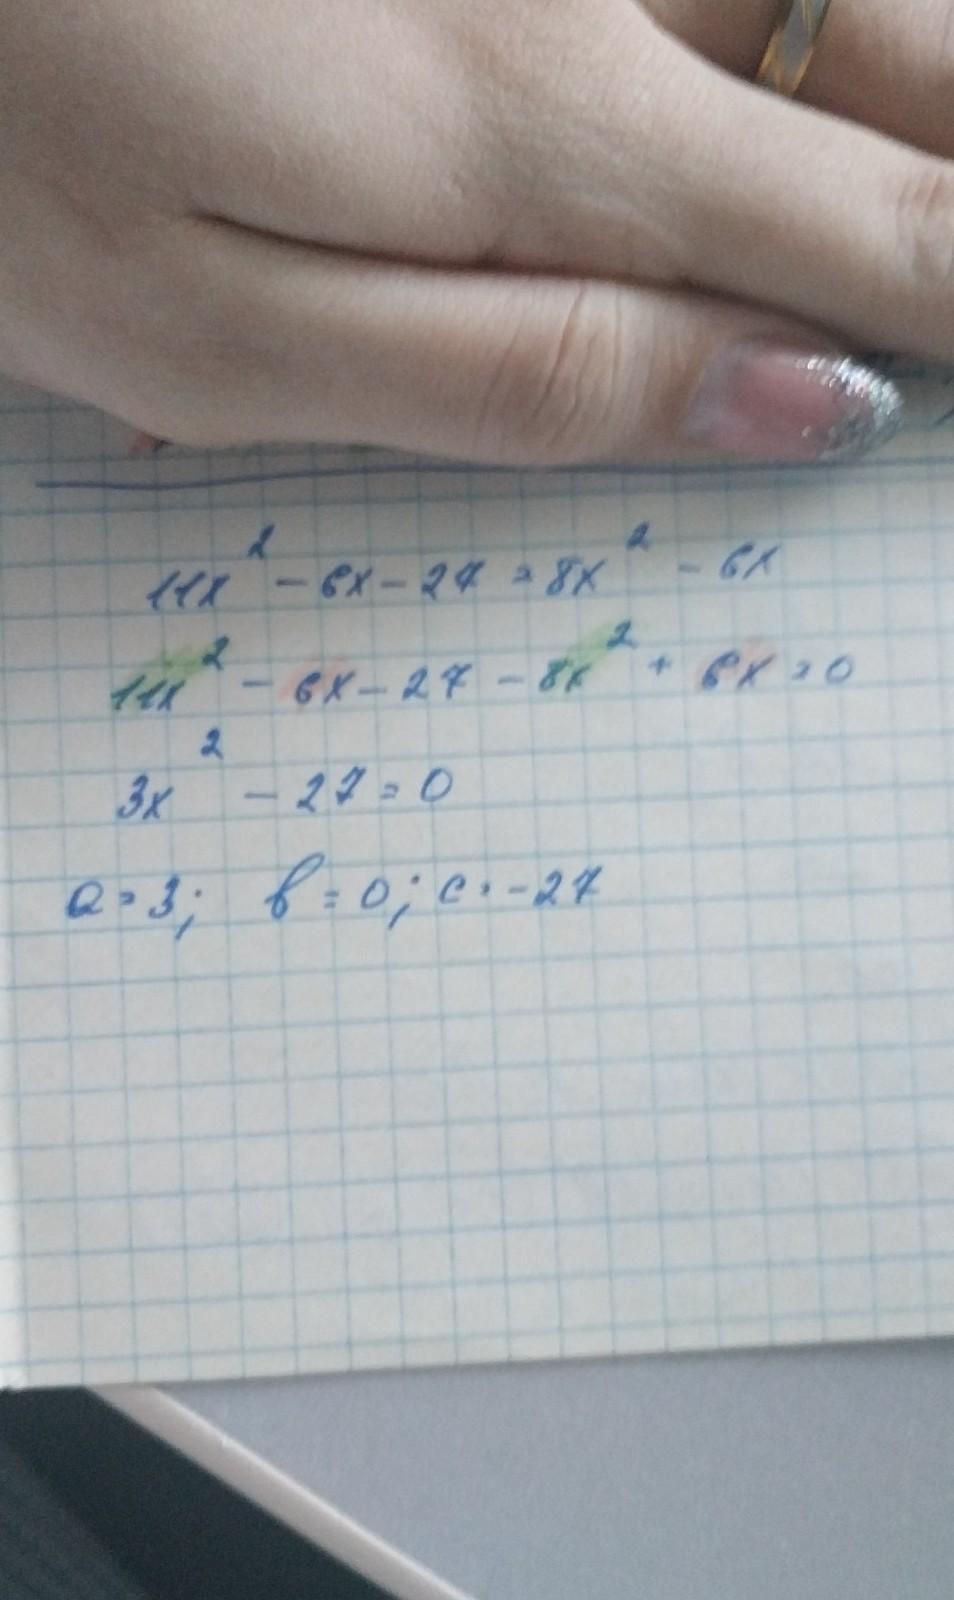 11x² - 6x - 27 = 8x² - 6x
11x² - 6x - 27 - 8x² + 6x = 0
3x² - 27 = 0
a = 3; b = 0; c = -27